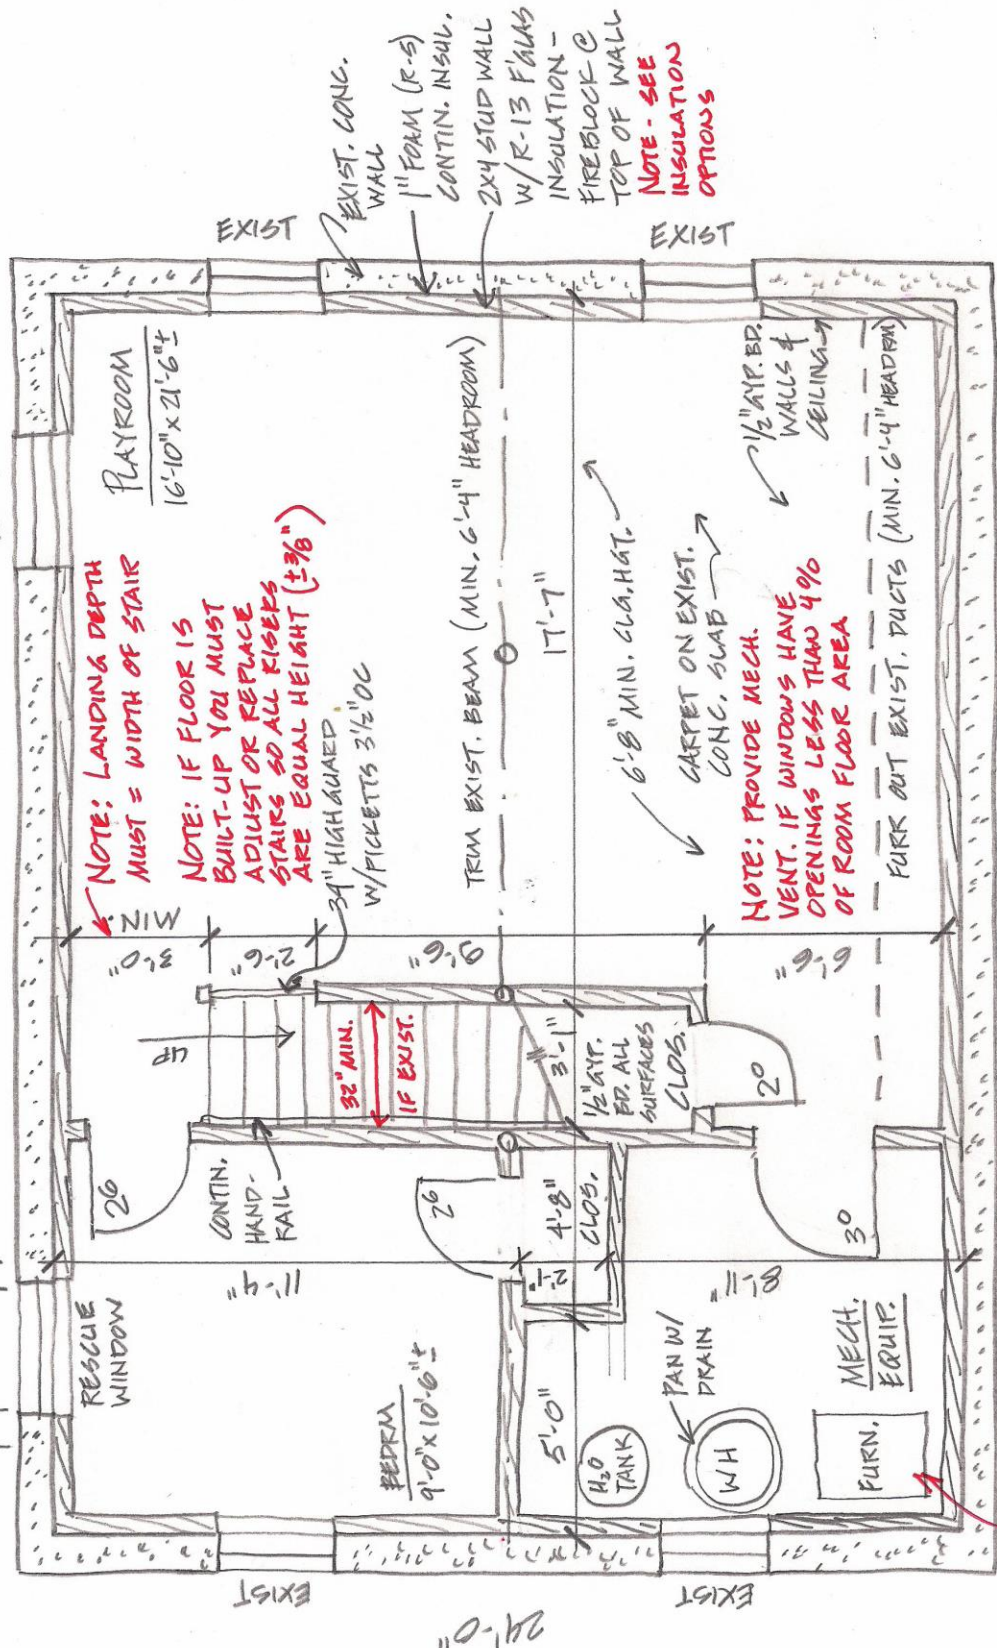 EXIST
EXIST
EXIST. CONC.
WALL
1" FOAM (R-5)
CONTIN. INSUL.
2X4 STUD WALL
W/R-13 F'GLAS
INSULATION -
FIREBLOCK @
TOP OF WALL
NOTE - SEE
INSULATION
OPTIONS
PLAYROOM
16'-10" x 21'-6"±
NOTE: LANDING DEPTH
MUST = WIDTH OF STAIR
NOTE: IF FLOOR IS
BUILT-UP YOU MUST
ADJUST OR REPLACE
STAIRS SO ALL RISERS
ARE EQUAL HEIGHT (±3/8")
34" HIGH GUARD
W/PICKETTS 3½" OC
TRIM EXIST. BEAM (MIN. 6'-4" HEADROOM)
17'-7"
6'-8" MIN. CLG. HGT.
CARPET ON EXIST.
CONC. SLAB
½" GYP. BD.
WALLS &
CEILING
NOTE: PROVIDE MECH.
VENT. IF WINDOWS HAVE
OPENINGS LESS THAN 4%
OF ROOM FLOOR AREA
FURR OUT EXIST. DUCTS (MIN. 6'-4" HEADRM)
MIN.
3'-0"
2'-6"
9'-6"
6'-6"
UP
32" MIN.
IF EXIST.
3'-1"
½" GYP.
BD. ALL
SURFACES
CLOS.
20
26
CONTIN.
HAND-
RAIL
26
4'-8"
CLOS.
30
11'-4"
2'-1"
8'-11"
RESCUE
WINDOW
BEDRM
9'-0" x 10'-6"±
5'-0"
H2O
TANK
PAN W/
DRAIN
WH
MECH.
EQUIP.
FURN.
EXIST
EXIST
24'-0"